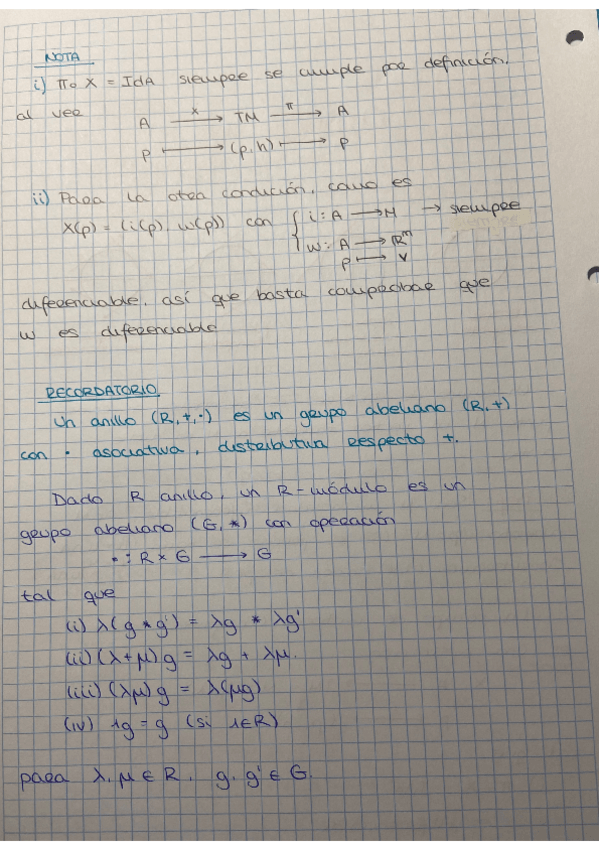 NOTA
i) π∘X = IdA siempre se cumple por definición.
al ver
A —X→ TM —π→ A
p ⟼ (p,h) ⟼ p
ii) Para la otra condición, como es
X(p) = (i(p), w(p)) con { i: A → M → siempre
w: A → ℝᵐ
p ⟼ v
diferenciable, así que basta comprobar que
w es diferenciable
RECORDATORIO
Un anillo (R,+,·) es un grupo abeliano (R,+)
con · asociativa, distributiva respecto +.
Dado R anillo, un R-módulo es un
grupo abeliano (G,*) con operación
• : R × G → G
tal que
(i) λ(g * g') = λg * λg'
(ii) (λ+μ)g = λg + λμ.
(iii) (λμ)g = λ(μg)
(iv) 1g = g (si 1∈R)
para λ, μ ∈ R, g, g' ∈ G.